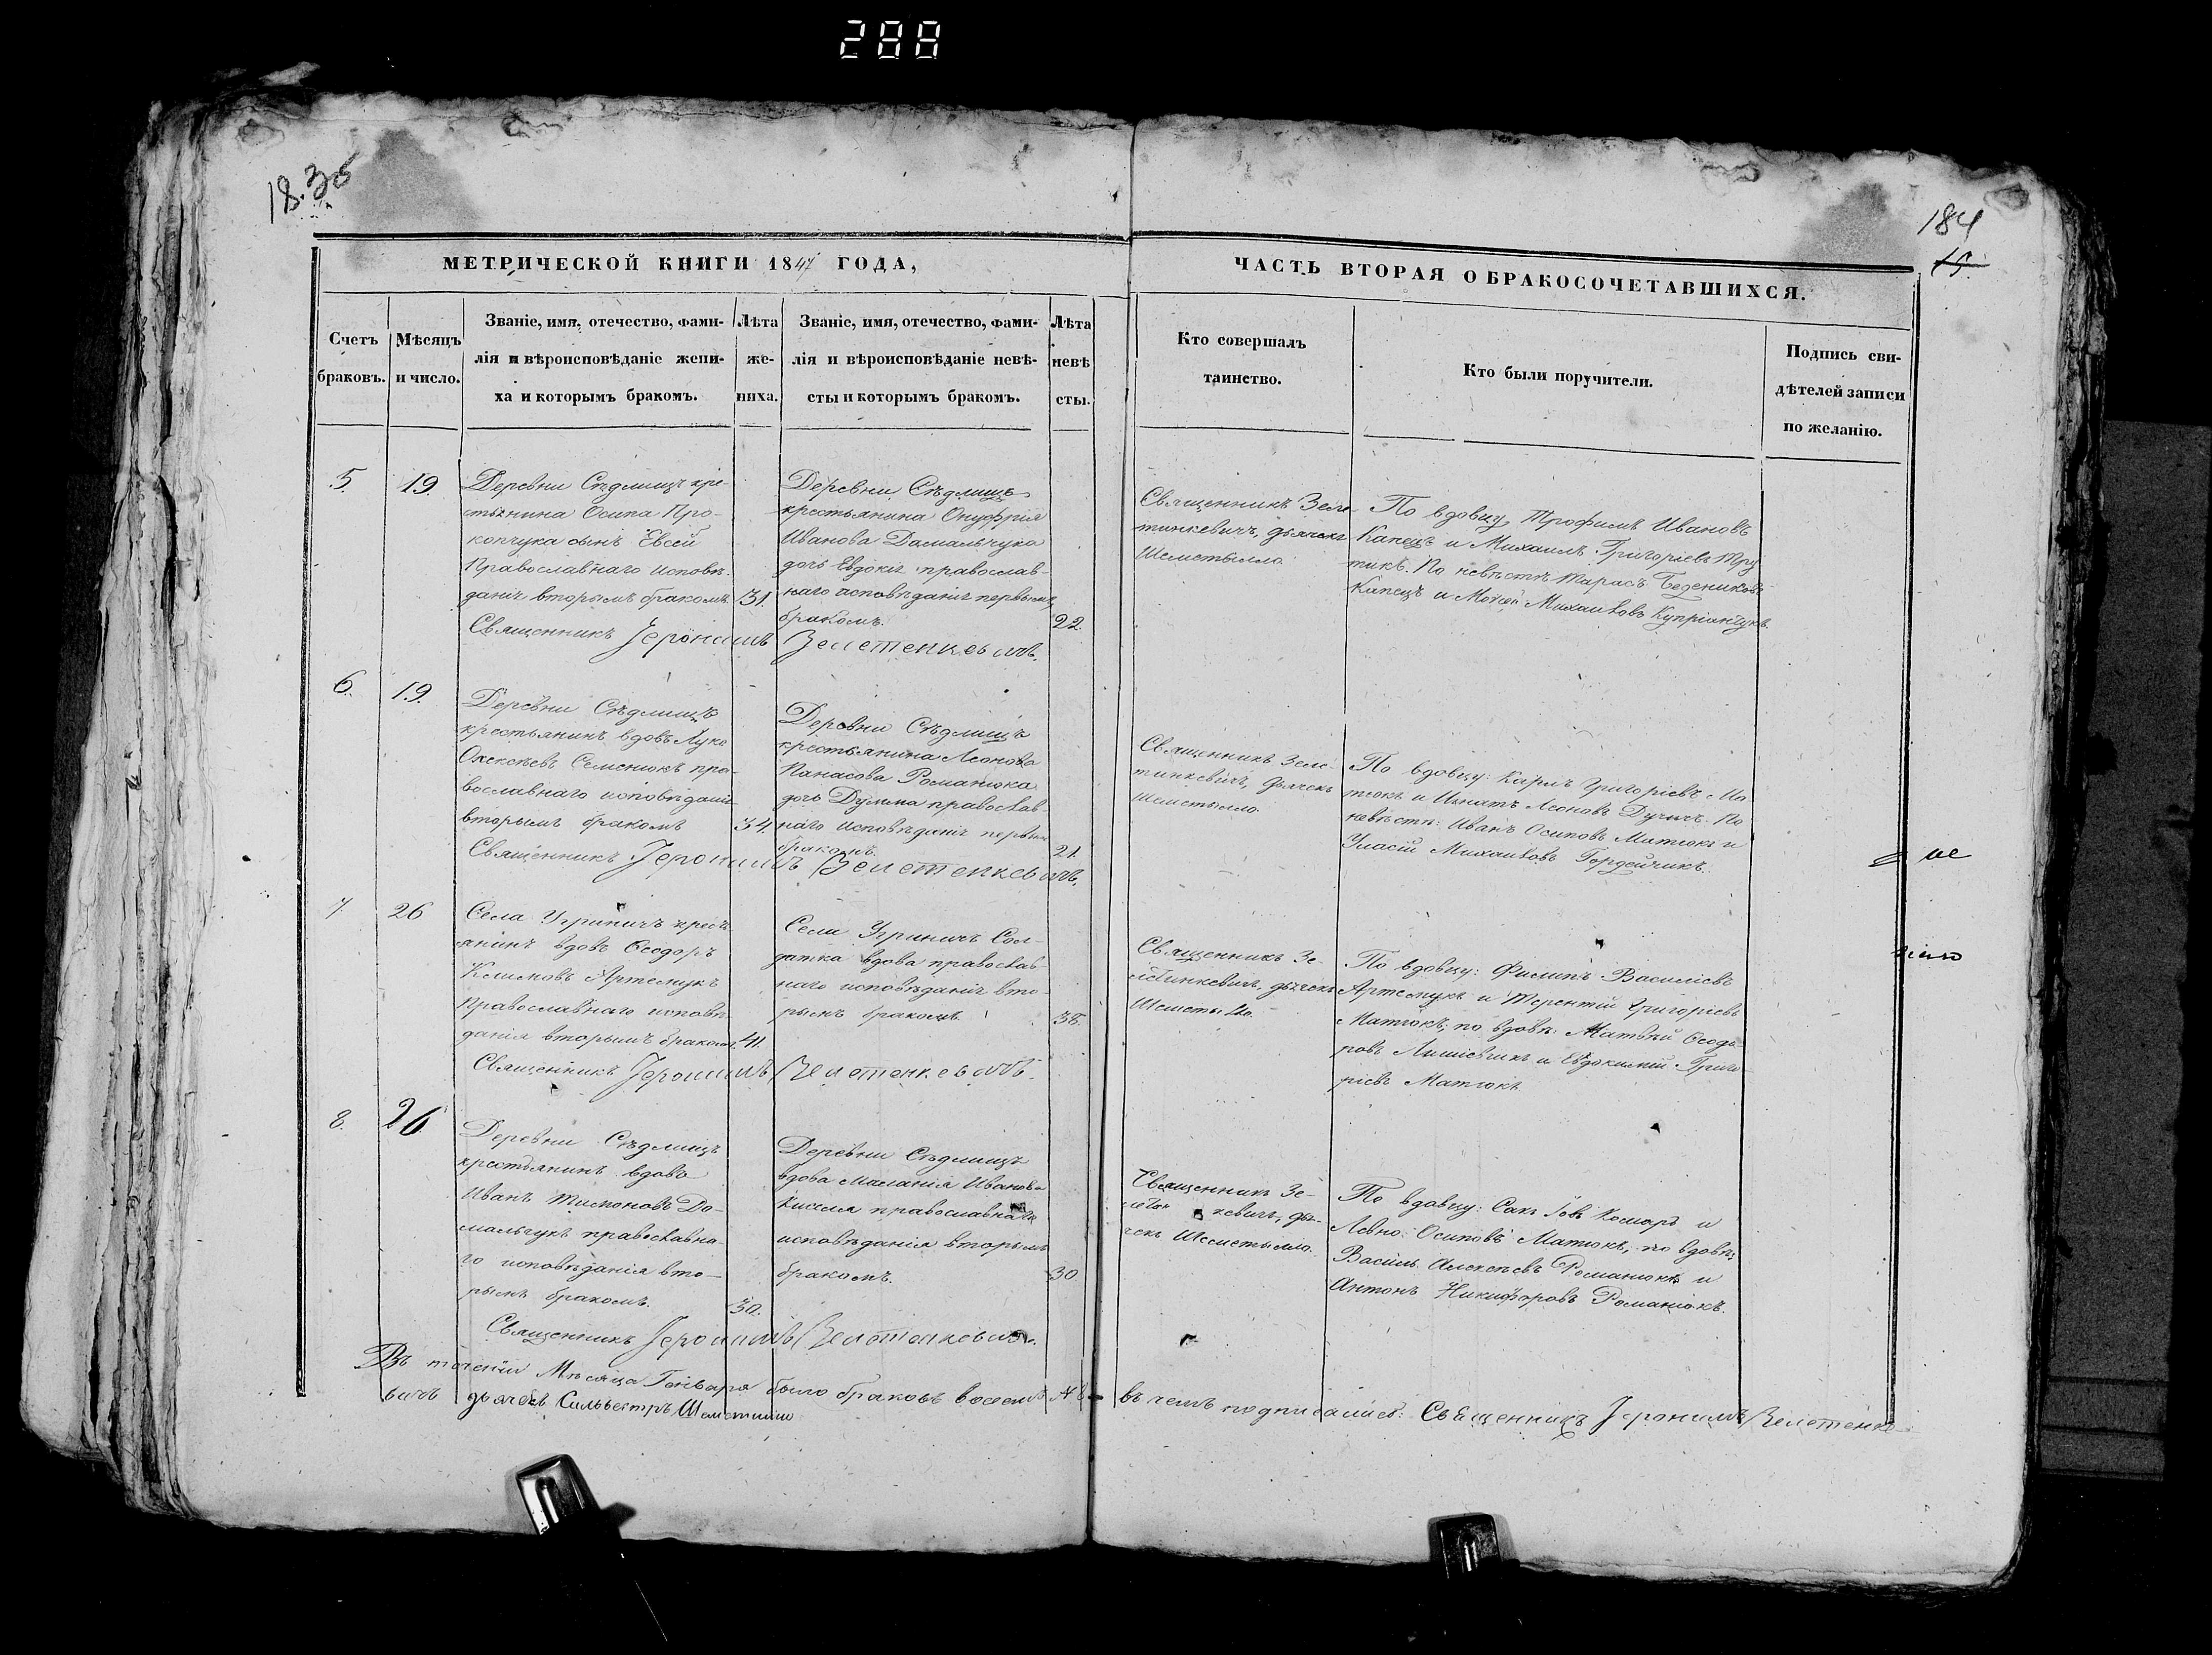 288
18.36
184
15.
МЕТРИЧЕСКОЙ КНИГИ 1847 ГОДА,
ЧАСТЬ ВТОРАЯ О БРАКОСОЧЕТАВШИХСЯ.
Счетъ
браковъ.
Мѣсяцъ
и число.
Званіе, имя, отечество, фами-
лія и вѣроисповѣданіе жени-
ха и которымъ бракомъ.
Лѣта
же-
ниха.
Званіе, имя, отечество, фами-
лія и вѣроисповѣданіе невѣ-
сты и которымъ бракомъ.
Лѣта
невѣ
сты.
Кто совершалъ
таинство.
Кто были поручители.
Подпись сви-
дѣтелей записи
по желанію.
5.
19
Деревни Сѣдлищъ кре-
стьянина Осипа Про-
копчука сынъ Евсей
Православнаго исповѣ-
данія вторымъ бракомъ.
31.
Деревни Сѣдлищъ
крестьянина Онуфрія
Иванова Домальчука
дочь Евдокія православ-
наго исповѣданія первымъ
бракомъ.
22.
Священникъ Зеле-
тинкевичъ, дьячекъ
Шеметылло.
По вдовцу Трофимъ Ивановъ
Капецъ и Михаилъ Григоріевъ
По невѣстѣ Тарасъ
Капецъ и Михаиловъ Купріянчукъ.
Священникъ Іеронимъ Зелетенкевичъ.
6.
19.
Деревни Сѣдлищъ
крестьянинъ вдовъ Лука
Олексѣевъ Семенюкъ пра-
вославнаго исповѣданія
вторымъ бракомъ
34.
Деревни Сѣдлищъ
крестьянина Леонова
Панасова Романюка
дочь православ-
наго исповѣданія первымъ
бракомъ.
21.
Священникъ Зеле-
тинкевичъ, дьячекъ
Шеметылло.
По вдовцу: Карпъ Григоріевъ Ма-
тюкъ и Игнатъ Леоновъ Дучичъ. По
невѣстѣ: Иванъ Осиповъ Матюкъ и
Уласій Михаиловъ Гордейчикъ.
Священникъ Іеронимъ Зелетенкевичъ.
7.
26
Села Угриничъ кресть
янинъ вдовъ Ѳеодоръ
Климовъ Артемукъ
Православнаго исповѣ
данія вторымъ бракомъ.
41.
Села Угриничъ Сол-
датка вдова православ-
наго исповѣданія вто-
рымъ бракомъ.
38.
Священникъ Зе-
летинкевичъ, дьячекъ
Шеметылло.
По вдовцу: Филипъ Василіевъ
Артемукъ и Терентій Григоріевъ
Матюкъ; по вдовѣ: Матвѣй Ѳеодо-
ровъ и Евдокимій Григо-
ріевъ Матюкъ.
Священникъ Іеронимъ Зелетенкевичъ.
8.
26.
Деревни Сѣдлищъ
крестьянинъ вдова
Иванъ Тимоновъ До-
мальчукъ православна-
го исповѣданія вто-
рымъ бракомъ.
30.
Деревни Сѣдлищъ
вдова Маланія Иванова
Киселя православнаго
исповѣданія вторымъ
бракомъ.
30
Священникъ Зе-
кевичъ, дья-
чекъ Шеметылло.
По вдовцу: Сакъ Іовъ Комаръ и
Левко Осиповъ Матюкъ; по вдовѣ
Василь Алексѣевъ Романюкъ и
Антонъ Никифоровъ Романюкъ.
Священникъ Іеронимъ Зелетенкевичъ.
Въ теченіи Мѣсяца Генваря было браковъ восемь № 8 въ чемъ подписались: Священникъ Іеронимъ Зелетенке-
вичъ дьячекъ Сильвестръ Шеметилло